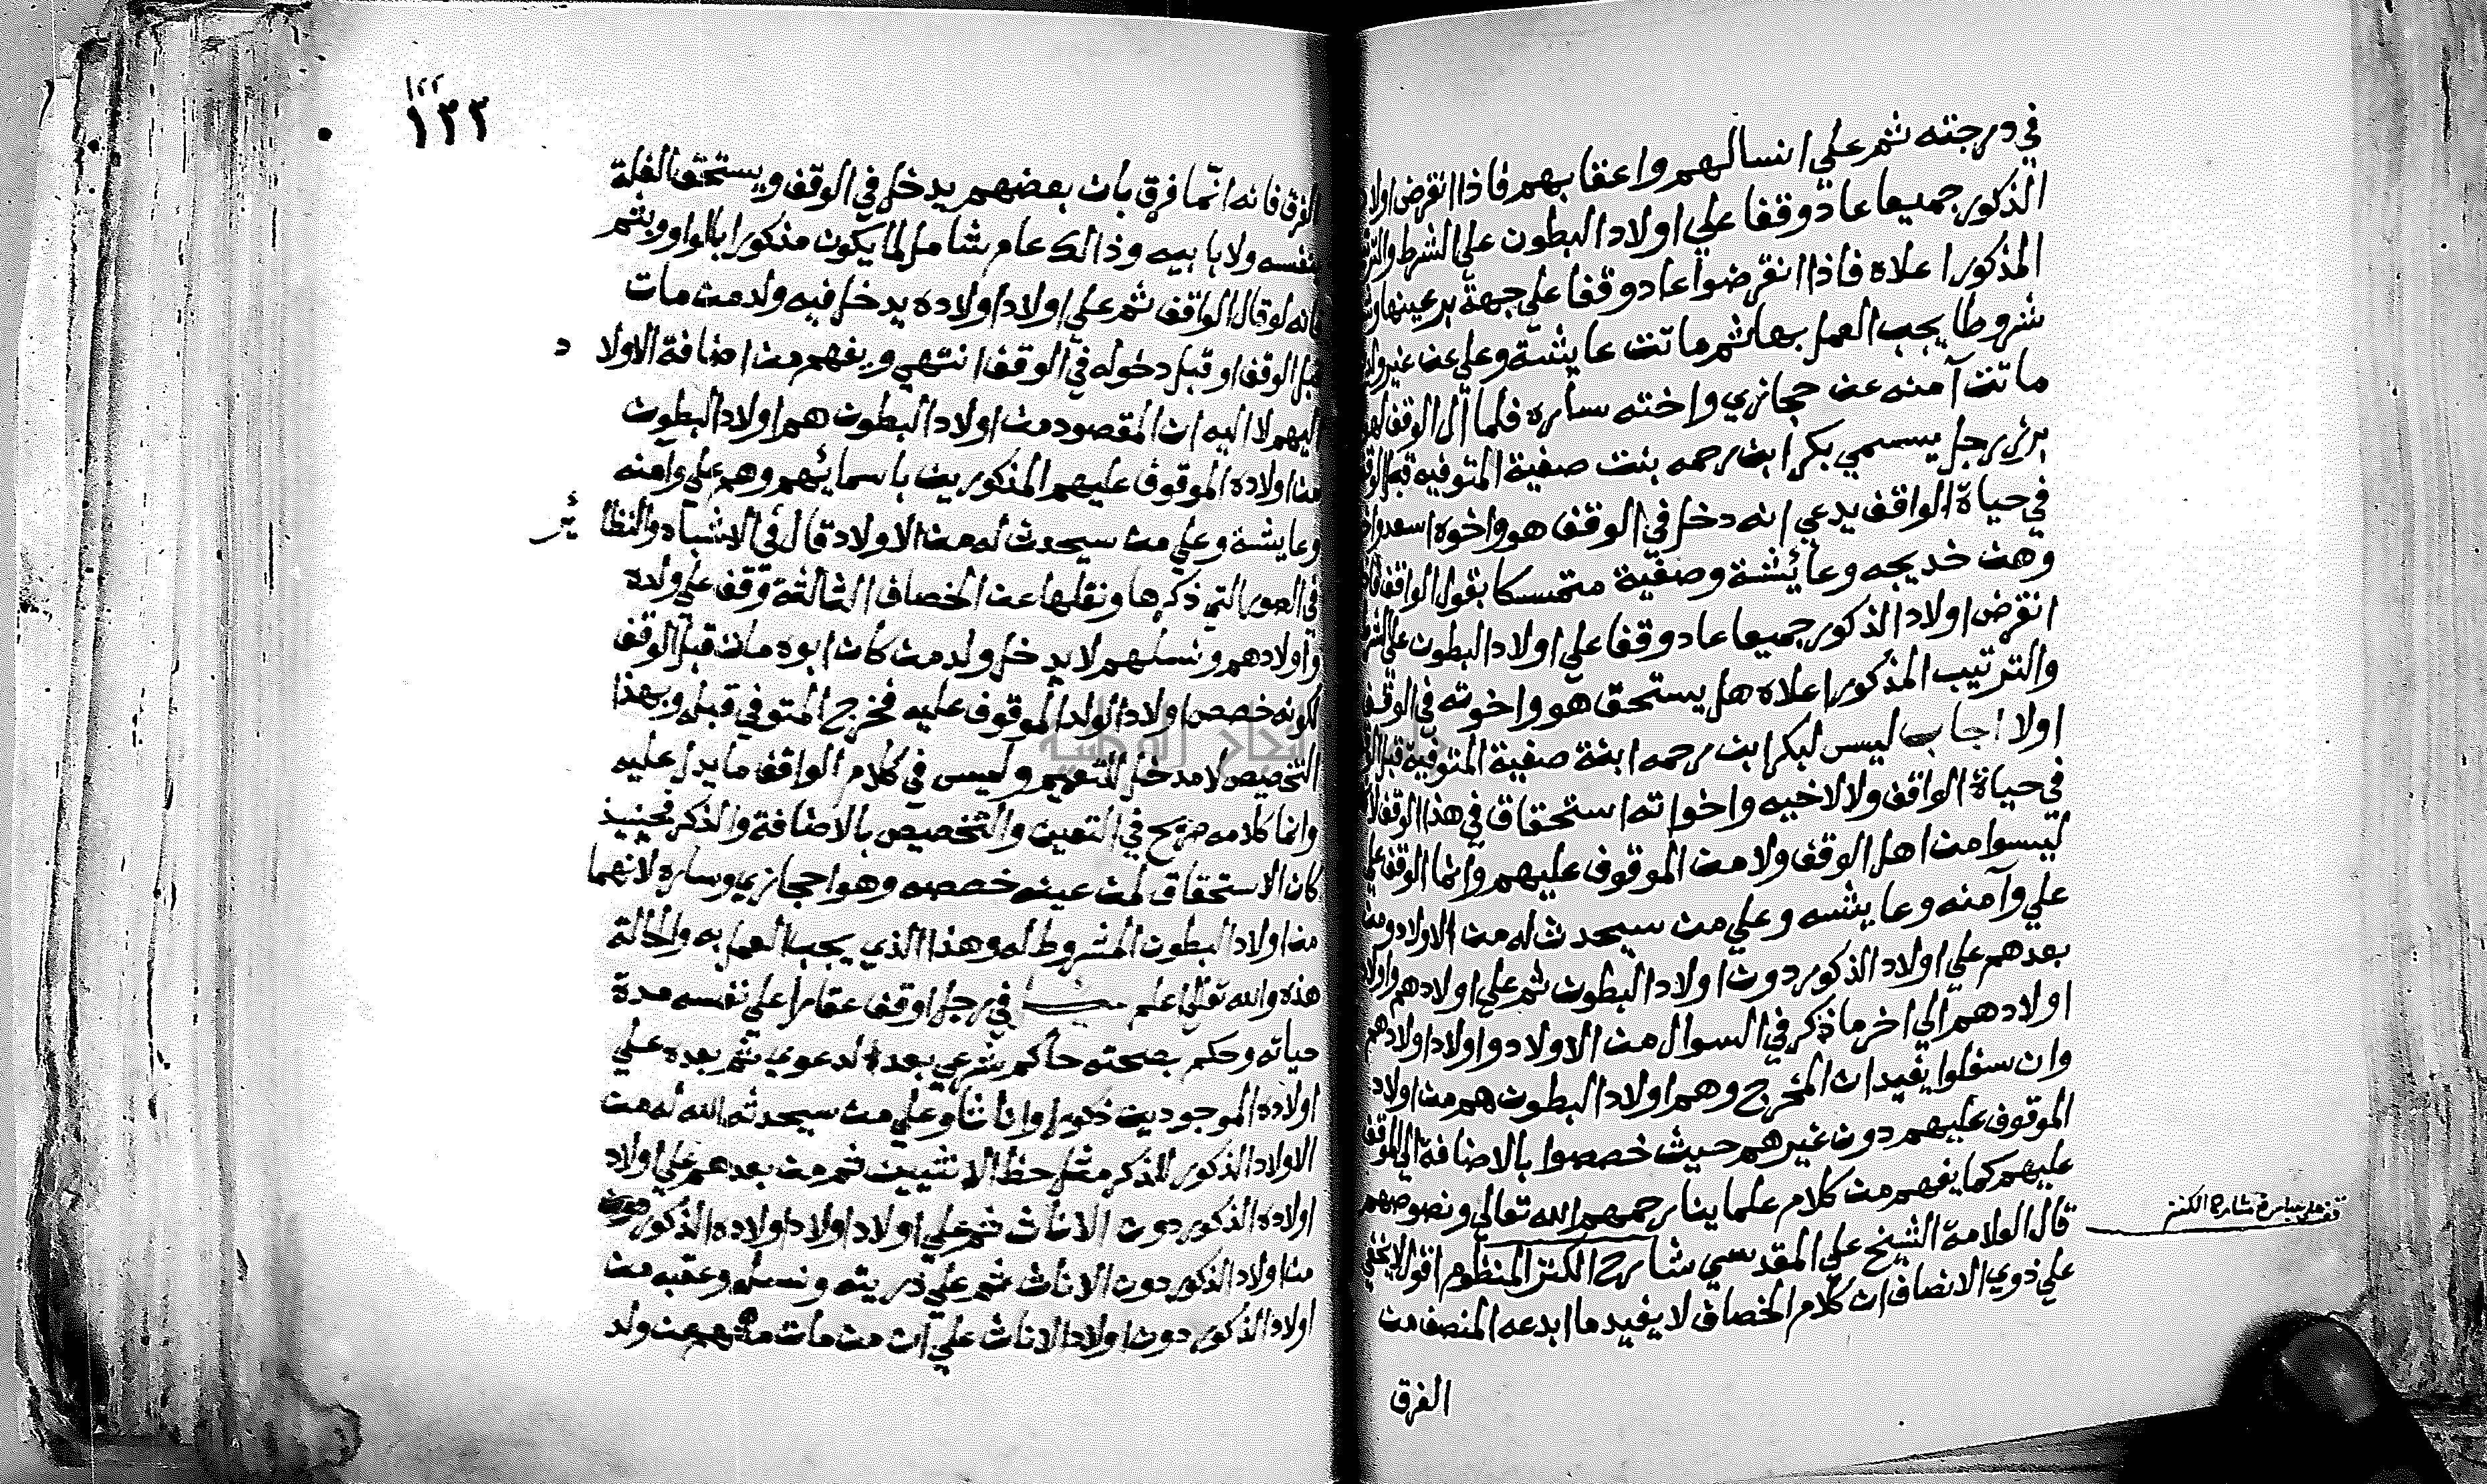 في درجته ثم علي انسالهم واعقابهم فاذا انقرض اولاد
الذكور جميعا عاد وقفا علي اولاد البطون علي الشرط والترتيب
المذكور اعلاه فاذا انقرضوا عاد وقفا علي جهة بر عينها
شروطا يجب العمل بها ثم ماتت عايشة وعلي عن غير ولد
ماتت آمنه عن حجازي واخته ساره فلما آل الوقف لهما
برز رجل يسمي بكر ابن رحمه بنت صفية المتوفيه قبل الوقف
في حياة الواقف يدعي انه دخل في الوقف هو واخوه اسعد
وهن خديجه وعائشة وصفية متمسكا بقول الواقف فاذا
انقرض اولاد الذكور جميعا عاد وقفا علي اولاد البطون علي الشرط
والترتيب المذكور اعلاه هل يستحق هو واخوته في الوقف
اولا اجاب ليس لبكر ابن رحمه ابنة صفية المتوفية قبل الوقف
في حياة الواقف ولا لاخيه واخواته استحقاق في هذا الوقف لانهم
ليسوا من اهل الوقف ولا من الموقوف عليهم وانما الوقف علي
علي وآمنه وعايشه وعلي من سيحدث له من الاولاد ومن
بعدهم علي اولاد الذكور دون اولاد البطون ثم علي اولادهم واولاد
اولادهم الي اخر ما ذكر في السوال من الاولاد واولاد اولادهم
وان سفلوا يفيد ان المخرج وهم اولاد البطون هم من اولاد
الموقوف عليهم دون غيرهم حيث خصصوا بالاضافة الي الموقوف
عليهم كما يفهم من كلام علماينا رحمهم الله تعالي ونصوصهم
قال العلامة الشيخ علي المقدسي شارح الكنز المنظوم اقول لا يخفي
علي ذوي الانصاف ان كلام الخصاف لا يفيد ما ابدعه المنصف من
الفرق
الكنز
١٢٢
١٢٢
الفرق فانه انما فرق بان بعضهم يدخل في الوقف ويستحق الغلة
بنفسه ولا بابيه وذالك عام شامل لما يكون مذكورا بالواو وبثم
فانه لو قال الواقف ثم علي اولاد اولاده يدخل فيه ولد من مات
قبل الوقف او قبل دخوله في الوقف انتهي ويفهم من اضافة الاولاد
اليهم لا اليه ان المقصود من اولاد البطون هم اولاد البطون
من اولاده الموقوف عليهم المذكورين باسمائهم وهم علي وآمنه
وعايشة وعلي من سيحدث له من الاولاد قال في الاشباه والنظائر
في الصور التي ذكرها ونقلها عن الخصاف الثالثة وقف علي ولده
واولادهم ونسلهم لا يدخل ولد من كان ابوه مات قبل الوقف
لكونه خصص اولاد الولد الموقوف عليه فخرج المتوفي قبله وبهذا
التخصيص لا مدخل للتعميم وليس في كلام الواقف ما يدل عليه
وانما كلامه صريح في التعين والتخصيص بالاضافة والذكر فحينيذ
كان الاستحقاق لمن عينه خصصه وهو احجازي وساره لانهما
من اولاد البطون المشروط له وهذا الذي يجب العمل به والحالة
هذه والله تعالي اعلم في رجل اوقف عقارا علي نفسه مدة
حياته وحكم بصحته حاكم شرعي بعد الدعوي ثم بعده علي
اولاده الموجودين ذكورا واناثا وعلي من سيحدثه الله له من
الاولاد الذكور للذكر مثل حظ الانثيين ثم من بعدهم علي اولاد
اولاده الذكور دون الاناث ثم علي اولاد اولاد اولاده الذكور دون
من اولاد الذكور دون الاناث ثم علي ذريته ونسله وعقبه من
اولاد الذكور دون اولاد الاناث علي ان من مات منهم عن ولد